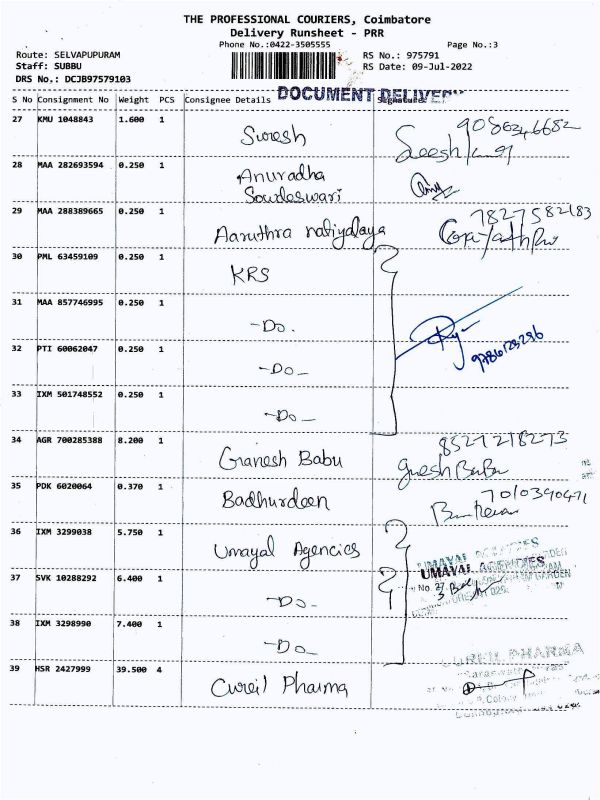 THE PROFESSIONAL COURIERS, Coimbatore
Delivery Runsheet - PRR
Phone No.:0422-3505555 Page No.:3
Route: SELVAPUPURAM RS No.: 975791
Staff: SUBBU RS Date: 09-Jul-2022
DRS No.: DCJB97579103
DOCUMENT DELIVERY
S No Consignment No Weight PCS Consignee Details Signature
27 KMU 1048843 1.600 1 Suresh
28 MAA 282693594 0.250 1 Anuradha
Sowdeswari
29 MAA 288389665 0.250 1 Aaruthra 7827582183
30 PML 63459109 0.250 1 KRS
31 MAA 857746995 0.250 1 -Do.
32 PTI 60062047 0.250 1 -Do_
33 IXM 501748552 0.250 1 -Do_
34 AGR 700285388 8.200 1 Ganesh Babu 8527218273
35 PDK 6020064 0.370 1 Badhurdeen 7010390471
36 IXM 3299038 5.750 1 Umayal Agencies
UMAYAL AGENCIES
37 SVK 10288292 6.400 1 -Do-
38 IXM 3298990 7.400 1 -Do_
39 HSR 2427999 39.500 4 Cureil Pharma
CUREIL PHARMA